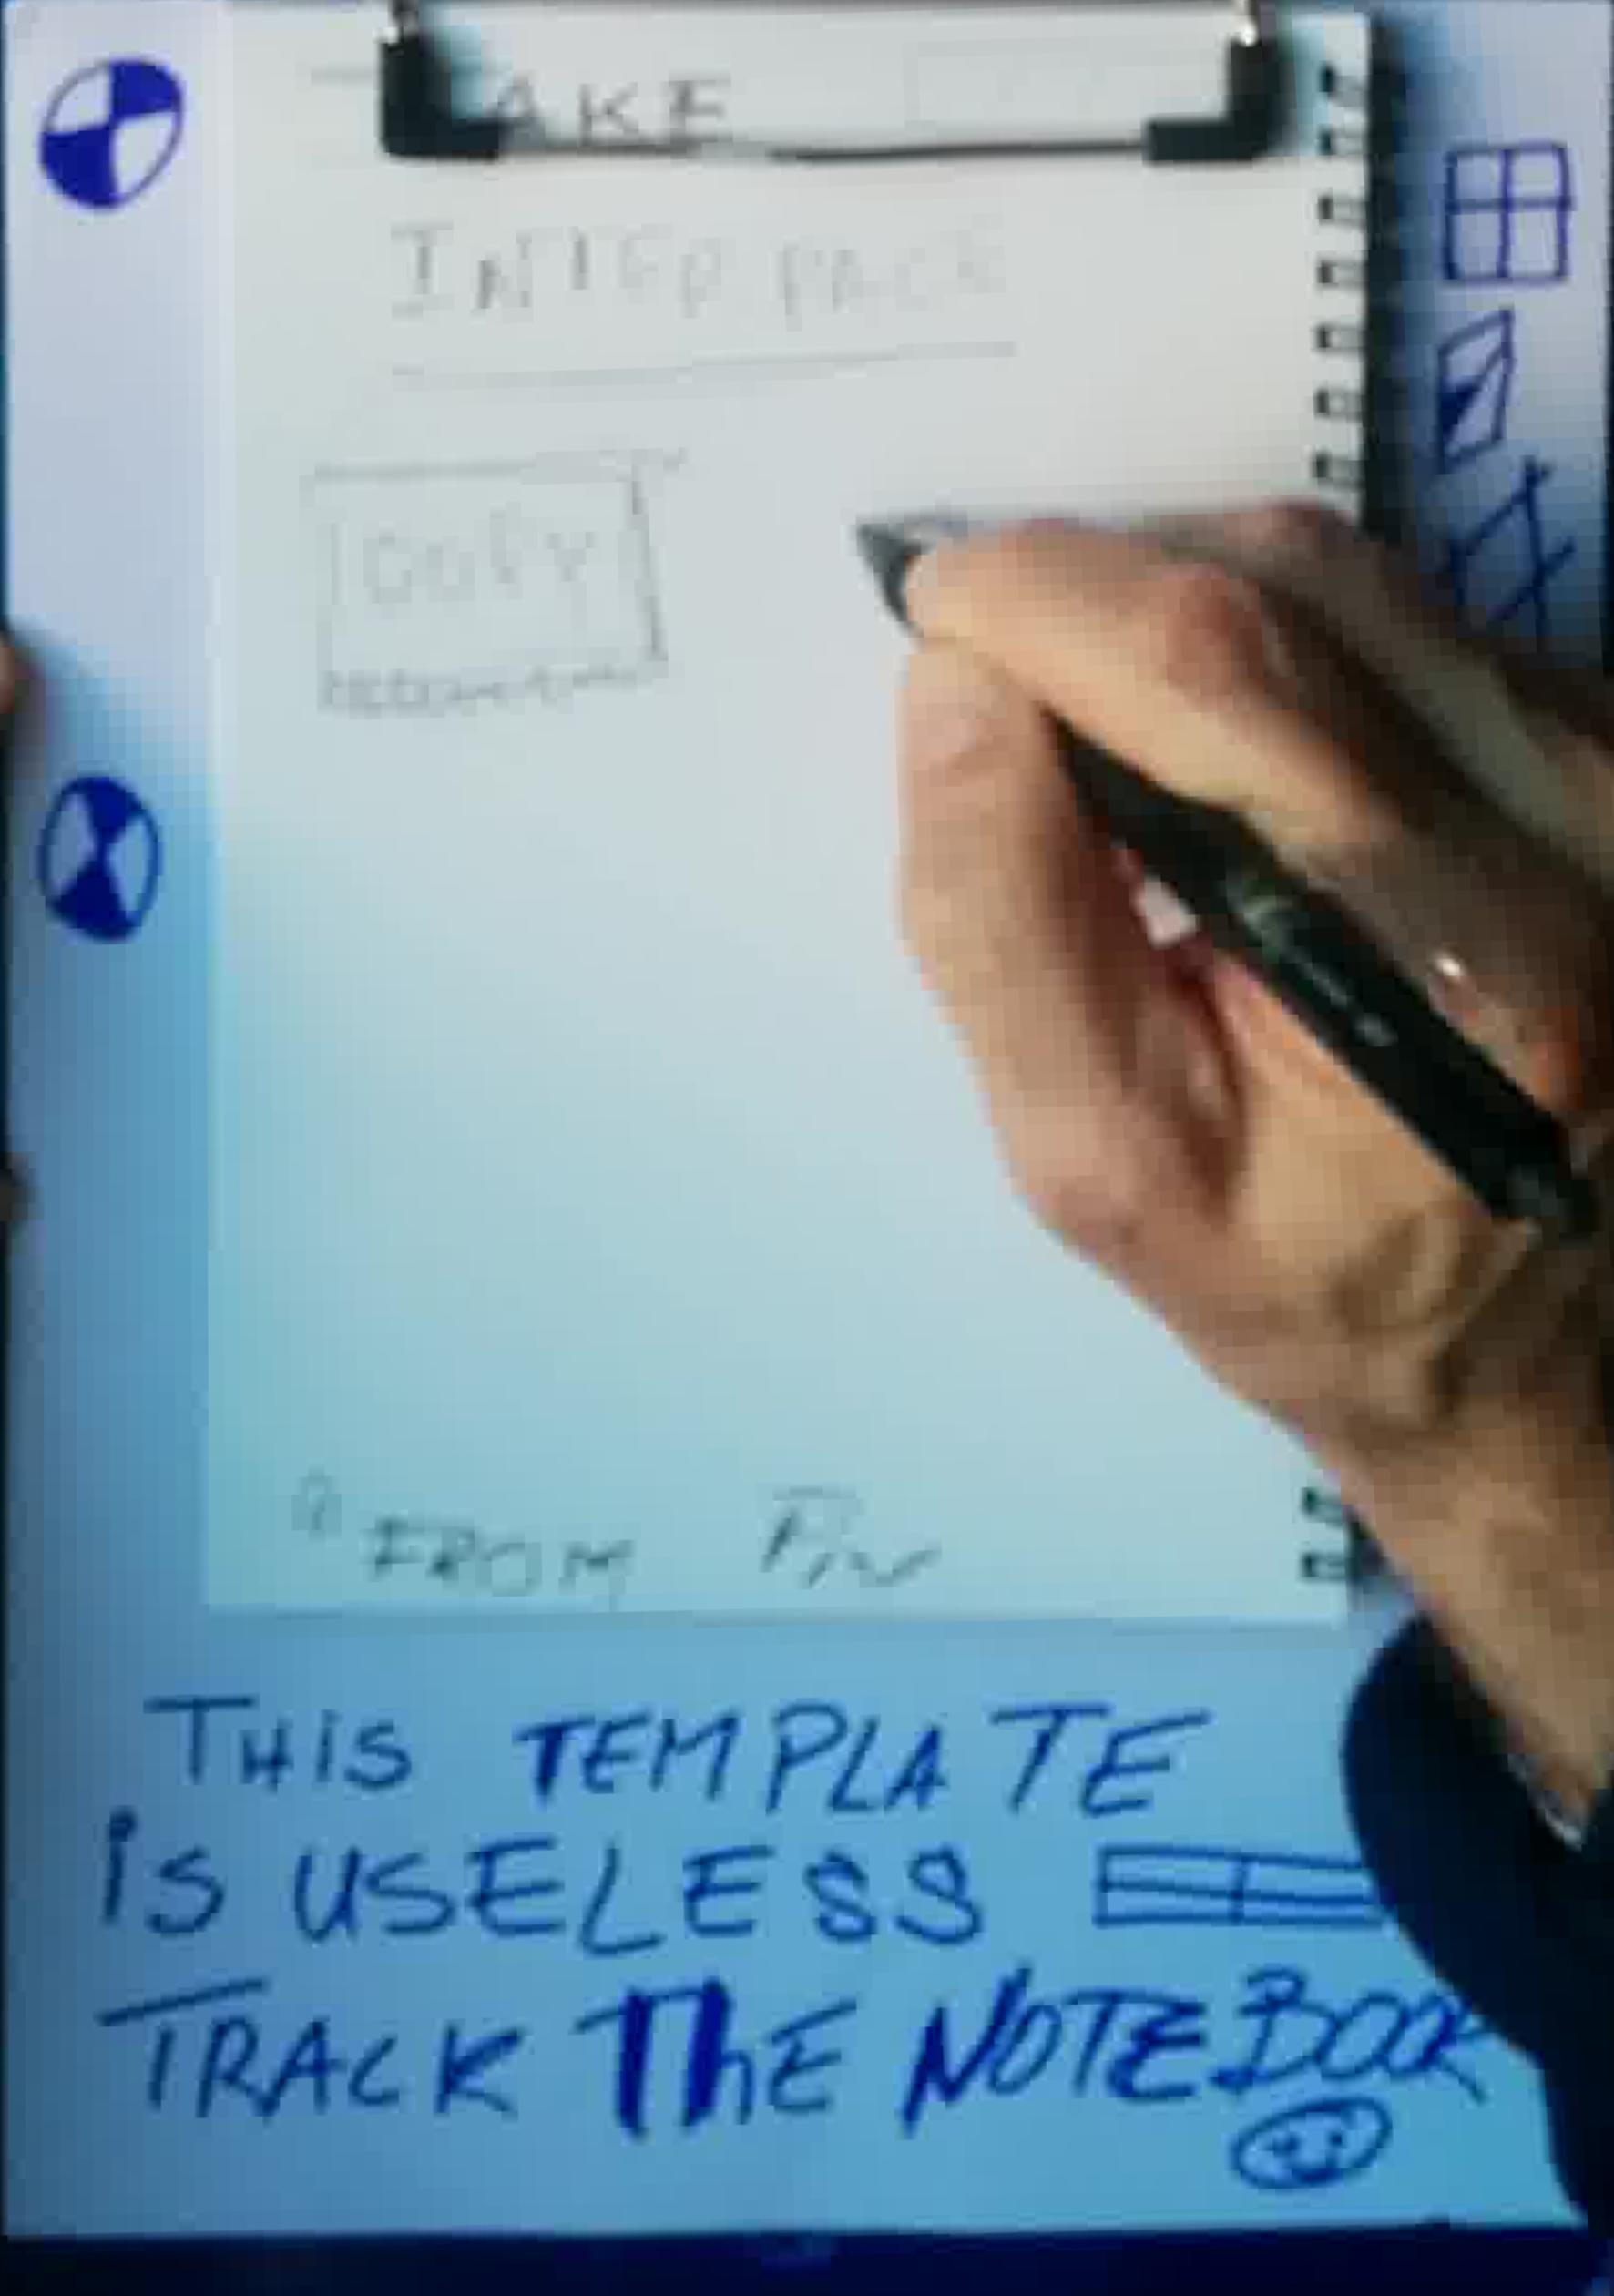 AKE
INTERFACE
COPY
FROM
THIS TEMPLATE
iS USELESS
TRACK ThE NOTEBOOK